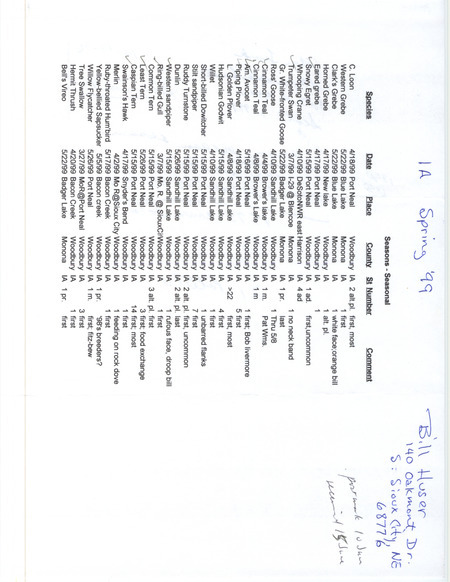 IA Spring '99
Bill Huser
140 Oakmont Dr.
S. Sioux City, NE
68776
postmark 10 Jun
received 15 June
Seasons - Seasonal
Species Date Place County St Number Comment
C. Loon 4/18/99 Port Neal Woodbury IA 2 alt. pl. first, most
Western Grebe 5/22/99 Blue Lake Monona IA 1 first
Clark's Grebe 5/22/99 Blue Lake Monona IA 1 white face;orange bill
Horned Grebe 4/17/99 New lake Woodbury IA 1 alt. pl. first
Eared grebe 4/17/99 Port Neal Woodbury IA 1 first
Snowy Egret 5/15/99 Port Neal Woodbury IA 1 ad. first,uncommon
Whooping Crane 4/10/99 DeSotoNWR east Harrison IA 4 ad
Trumpeter Swan 3/7/99 I-29 @ Blencoe Monona IA 1 no neck band
Gr. White-fronted Goose 5/22/99 Badger Lake Monona IA 1 pr. last
Ross' Goose 4/10/99 Sandhill Lake Woodbury IA 1 Thru 5/8
Cinnamon Teal 4/4/99 Brower's Lake Woodbury IA 1 m. Pat Wms.
Cinnamon Teal 4/8/99 Brower's Lake Woodbury IA 1 m.
Am. Avocet 5/16/99 Port Neal Woodbury IA 1 first; Bob livermore
Piping Plover 4/18/99 Port Neal Woodbury IA 5 first
L. Golden Plover 4/8/99 Sandhill Lake Woodbury IA >22 first, most
Hudsonian Godwit 5/15/99 Sandhill Lake Woodbury IA 4 first
Willet 4/10/99 Sandhill Lake Woodbury IA 1 first
Short-billed Dowitcher 5/15/99 Sandhill Lake Woodbury IA 1 unbarred flanks
Stilt sandpiper 5/15/99 Port Neal Woodbury IA 7 first
Ruddy Turnstone 5/15/99 Port Neal Woodbury IA 2 alt. pl. first, uncommon
Dunlin 5/26/99 Sandhill Lake Woodbury IA 2 alt. pl. last
Western sandpiper 5/15/99 Sandhill Lake Woodbury IA 1 rufous face, droop bill
Ring-billed Gull 3/7/99 Mo. R. @ SiouxCityWoodbury IA 1 first
Common Tern 5/15/99 Port Neal Woodbury IA 3 alt. pl. first
Least Tern 5/26/99 Port Neal Woodbury IA 3 first, food exchange
Caspian Tern 5/15/99 Port Neal Woodbury IA 14 first, most
Swainson's Hawk 4/17/99 Snyder's Bend Woodbury IA 1 first
Merlin 4/2/99 Mo R@Sioux City Woodbury IA 1 feeding on rock dove
Ruby-throated Hum'bird 5/17/99 Bacon Creek Woodbury IA 1 first
Yellow-bellied Sapsucker 5/5/99 Bacon creek Woodbury IA 1 pr. '98's breeders?
Willow Flycatcher 5/26/99 Port Neal Woodbury IA 1 m. first; fitz-bew
Tree Swallow 3/27/99 MoR@Port Neal Woodbury IA 3 first
Hermit Thrush 4/20/99 Bacon Creek Woodbury IA 1 first
Bell's Vireo 5/22/99 Badger Lake Monona IA 1 pr. first